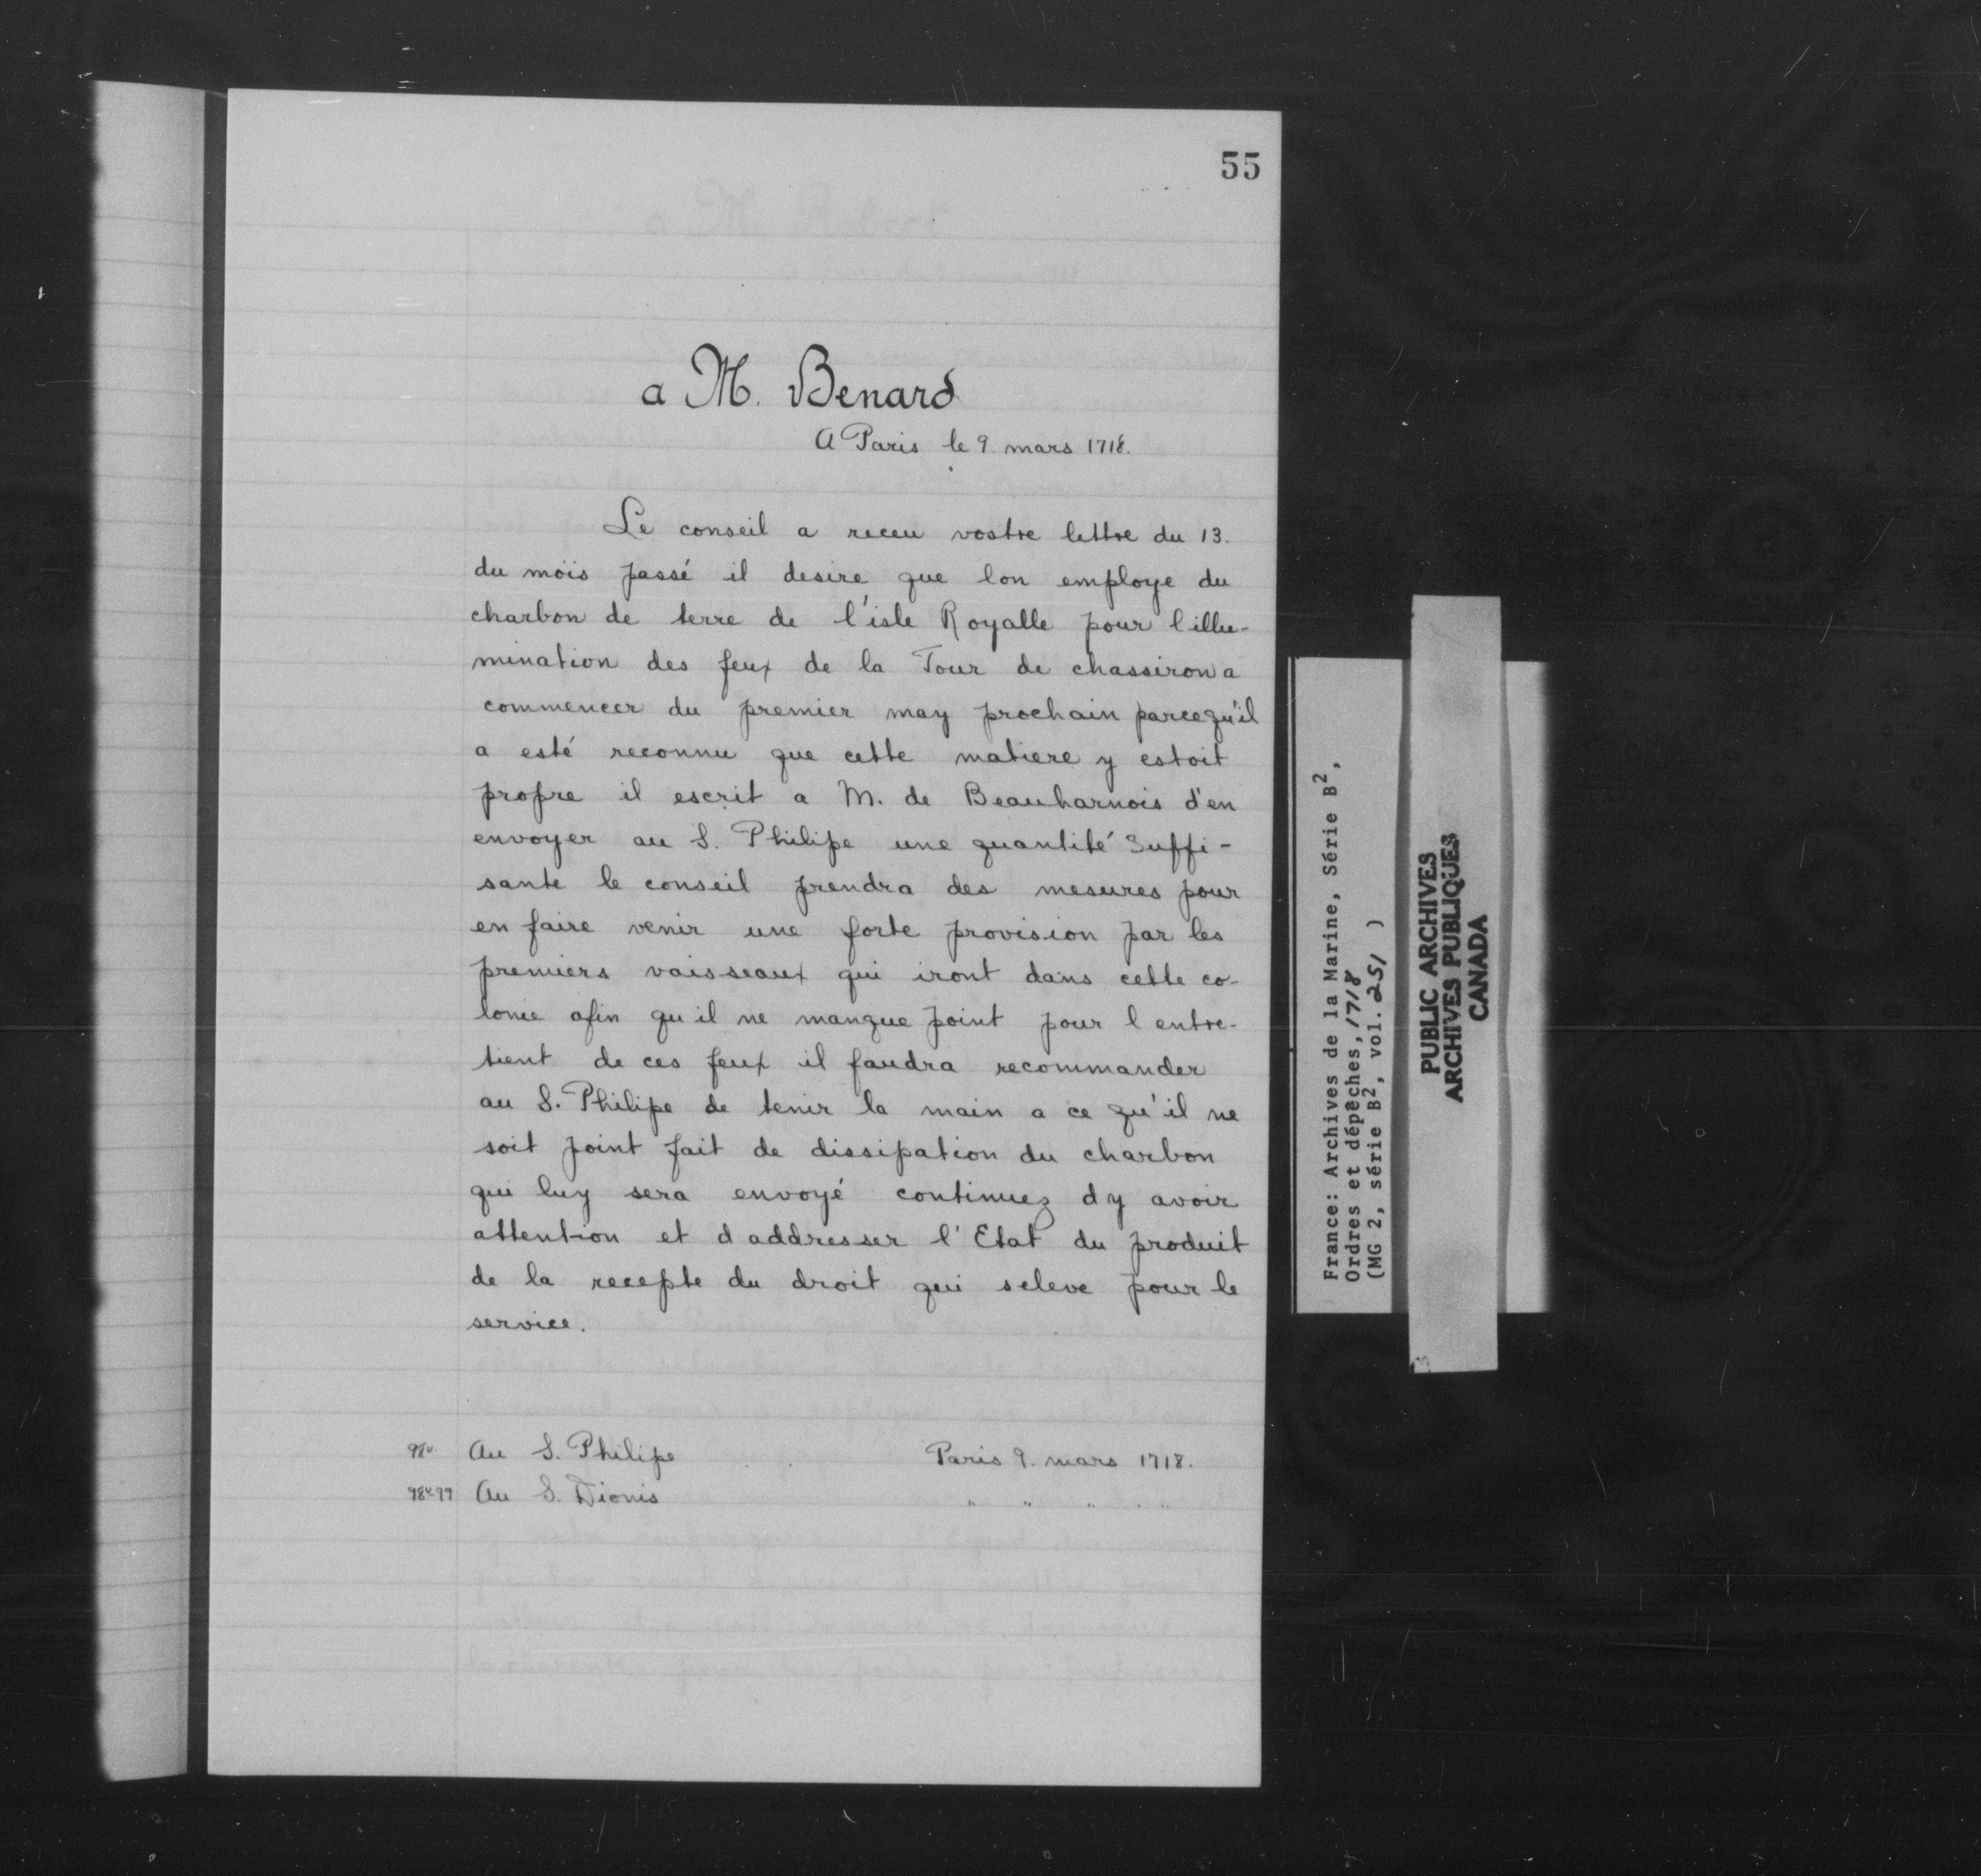 55
a M. Benard
A Paris le 9. mars 1718.
Le conseil a receu vostre lettre du 13.
du mois passé il desire que lon employe du
charbon de terre de l'isle Royalle pour l'illu-
mination des feux de la Tour de chassiron a
commencer du premier may prochain parcequ'il
a esté reconnu que cette matiere y estoit
propre il escrit a M. de Beauharnois d'en
envoyer au S. Philipe une quantité suffi-
sante le conseil prendra des mesures pour
en faire venir une forte provision par les
premiers vaisseaux qui iront dans cette co-
lonie afin qu il ne manque point pour l entre-
tient de ces feux il faudra recommander
au S. Philipe de tenir la main a ce qu'il ne
soit point fait de dissipation du charbon
qui luy sera envoyé continuez d y avoir
attention et d addresser l'Etat du produit
de la recepte du droit qui seleve pour le
service.
98v Au S. Philipe Paris 9. mars 1718.
98v-99 Au S. Dionis " " " "
France: Archives de la Marine, Série B2,
Ordres et dépêches, 1718
(MG 2, série B2, vol. 251 )
PUBLIC ARCHIVES
ARCHIVES PUBLIQUES
CANADA